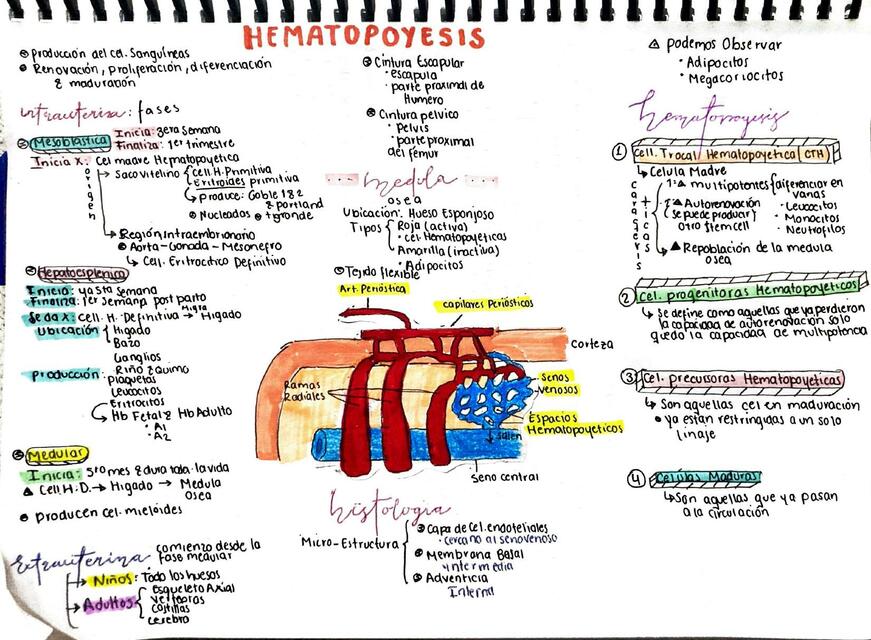 HEMATOPOYESIS
producción del cel. Sanguíneas
Renovación, proliferación, diferenciación
& maduración
intrauterina: fases
Mesoblastica
Inicia: 3era semana
Finaliza: 1er trimestre
Inicia x: Cel madre Hematopoyetica
origen
Saco vitelino
Cell H. Primitiva
Eritroides primitiva
produce: Goble 1 & 2
& portland
Nucleados & + grande
Región Intraembrionario
Aorta - Gonada - Mesonefro
Cell. Eritrocitico Definitivo
Hepatoesplenica
Inicia: ya 5ta semana
Finaliza: 1er semana post parto
Se da x: Cell. H. Definitiva Migra Higado
Ubicación
Higado
Bazo
Ganglios
Riño & quimo
Producción:
plaquetas
Leucocitos
Eritrocitos
Hb Fetal & Hb Adulto
A1
A2
Medular
Inicia: 5to mes & dura toda la vida
Cell H.D. → Higado → Medula
Osea
producen cel. mieloides
Extrauterina
comienzo desde la
fase medular
Niños: Todo los huesos
Adultos
Esqueleto Axial
vertebras
costillas
cerebro
Cintura Escapular
escapula
parte proximal de
Humero
Cintura pelvico
Pelvis
parte proximal
del femur
medula
osea
Ubicación: Hueso Esponjoso
Tipos
Roja (activa)
cel Hematopoyeticas
Amarilla (inactiva)
Adipocitos
Tejido flexible
Art. Perióstica
capilares Periósticos
Corteza
Ramas
Radiales
Senos
venosos
Espacios
Hematopoyeticos
salen
Seno central
histologia
Micro-Estructura
Capa de Cel. endoteliales
cercano al seno venoso
Membrana Basal
intermedia
Adventicia
Interna
podemos Observar
Adipocitos
Megacariocitos
hematopoyesis
1 Cell. Trocal Hematopoyetica (CTH)
Celula Madre
caracteristicas
1° multipotentes (diferenciar en
varias
Leucocitos
Monocitos
Neutrofilos
2° Autorenovación
(se puede producir
otro stem cell
Repoblación de la medula
osea
2 Cel. progenitoras Hematopoyeticos
se define como aquellas que ya perdieron
la capacidad de autorenovación solo
quedo la capacidad de multipotencia
3 Cel. precursoras Hematopoyeticas
Son aquellas cel en maduración
ya estan restringidas a un solo
linaje
4 Células Maduras
Son aquellas que ya pasan
a la circulación